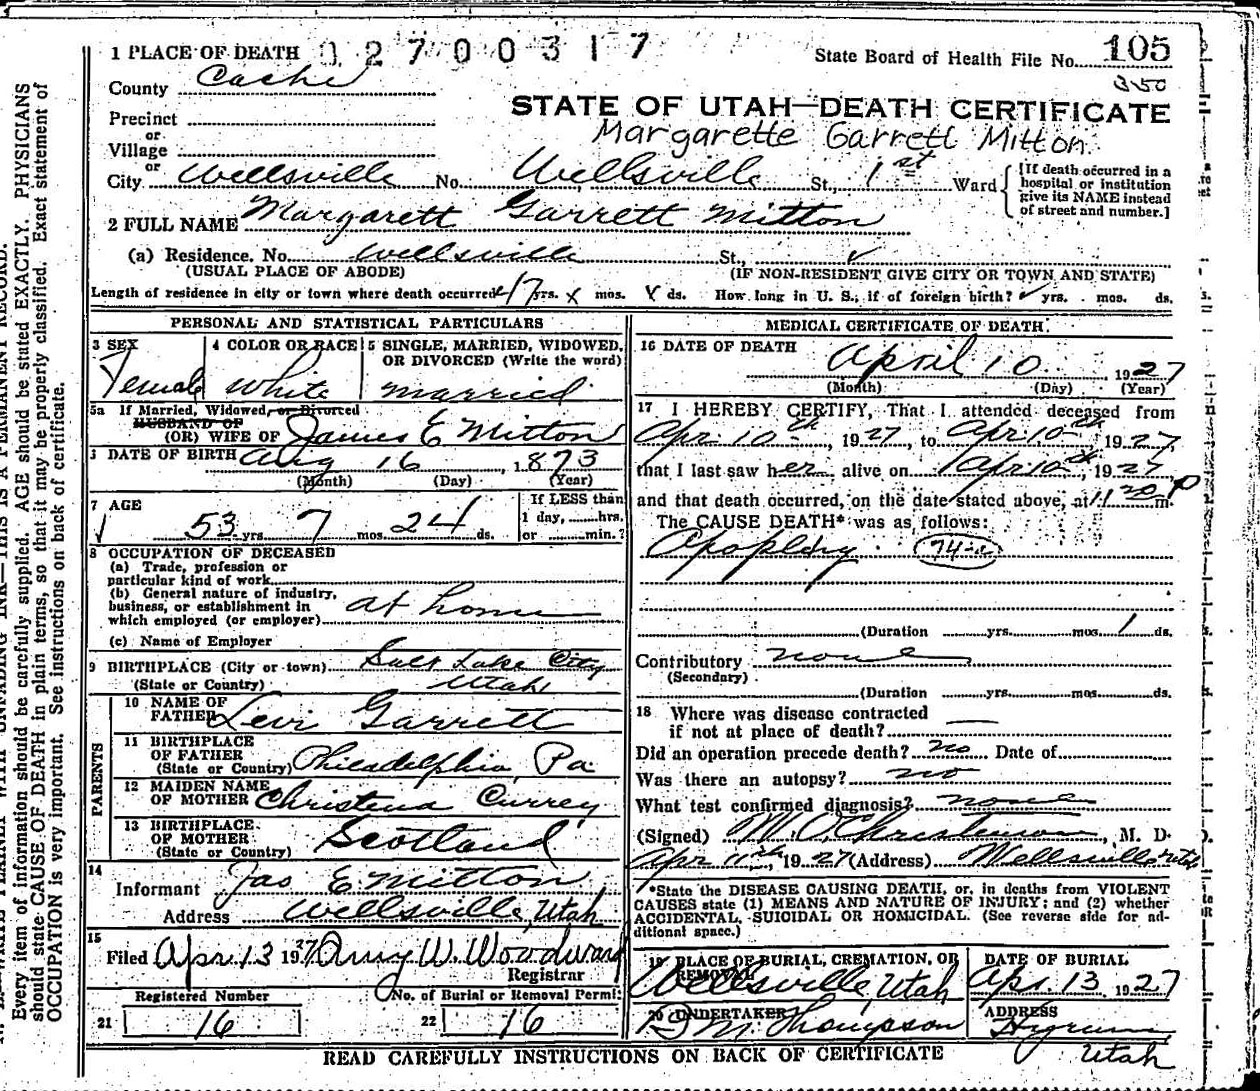 1 PLACE OF DEATH 02700317 State Board of Health File No. 105
County Cache 350
STATE OF UTAH—DEATH CERTIFICATE
Precinct
or
Margarette Garrett Mitton
Village
or
City Wellsville No. Wellsville St., 1st Ward
[If death occurred in a
hospital or institution
give its NAME instead
of street and number.]
2 FULL NAME Margarett Garrett Mitton
(a) Residence. No. Wellsville St.,
(USUAL PLACE OF ABODE) (IF NON-RESIDENT GIVE CITY OR TOWN AND STATE)
Length of residence in city or town where death occurred 17 yrs. x mos. ds. How long in U. S., if of foreign birth? yrs. mos. ds.
PERSONAL AND STATISTICAL PARTICULARS
3 SEX 4 COLOR OR RACE 5 SINGLE, MARRIED, WIDOWED,
OR DIVORCED (Write the word)
Female White married
5a If Married, Widowed, or Divorced
HUSBAND OF
(OR) WIFE OF James E Mitton
DATE OF BIRTH Aug 16, 1873
(Month) (Day) (Year)
7 AGE If LESS than
53 yrs 7 mos. 24 ds. 1 day, hrs.
or min.?
8 OCCUPATION OF DECEASED
(a) Trade, profession or
particular kind of work
(b) General nature of industry,
business, or establishment in
which employed (or employer) at home
(c) Name of Employer
9 BIRTHPLACE (City or town) Salt Lake City
(State or Country) Utah
PARENTS
10 NAME OF
FATHER Levi Garrett
11 BIRTHPLACE
OF FATHER
(State or Country) Philadelphia, Pa
12 MAIDEN NAME
OF MOTHER Christena Currey
13 BIRTHPLACE
OF MOTHER
(State or Country) Scotland
14
Informant Jas E Mitton
Address Wellsville, Utah
15
Filed Apr. 13 1937 Amy W. Woodward
Registrar
Registered Number No. of Burial or Removal Permit
21 16 22 16
MEDICAL CERTIFICATE OF DEATH.
16 DATE OF DEATH
April 10 1927
(Month) (Day) (Year)
17 I HEREBY CERTIFY, That I attended deceased from
Apr 10th, 1927, to Apr 10th, 1927,
that I last saw her alive on Apr 10th, 1927
and that death occurred, on the date stated above, at 11 30 P m.
The CAUSE DEATH* was as follows:
Apoplexy 74-a
(Duration yrs. mos. 1 ds.
Contributory none
(Secondary)
(Duration yrs. mos. ds.
18 Where was disease contracted
if not at place of death?
Did an operation precede death? no Date of
Was there an autopsy? no
What test confirmed diagnosis? none
(Signed) M. O. Christensen, M. D.
Apr 11th, 1927 (Address) Wellsville Utah
*State the DISEASE CAUSING DEATH, or, in deaths from VIOLENT
CAUSES state (1) MEANS AND NATURE OF INJURY; and (2) whether
ACCIDENTAL, SUICIDAL OR HOMICIDAL. (See reverse side for ad-
ditional space.)
19 PLACE OF BURIAL, CREMATION, OR DATE OF BURIAL
REMOVAL
Wellsville, Utah Apr. 13 1927
20 UNDERTAKER ADDRESS
D M. Thompson Hyrum
Utah
READ CAREFULLY INSTRUCTIONS ON BACK OF CERTIFICATE
WRITE PLAINLY WITH UNFADING INK—THIS IS A PERMANENT RECORD.
Every item of information should be carefully supplied. AGE should be stated EXACTLY. PHYSICIANS
should state CAUSE OF DEATH in plain terms, so that it may be properly classified. Exact statement of
OCCUPATION is very important. See instructions on back of certificate.